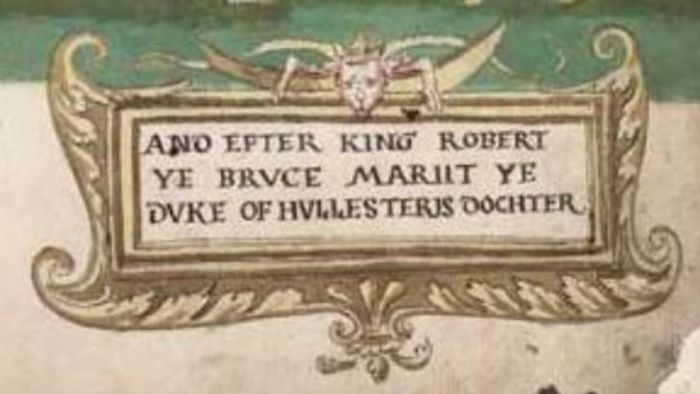 AND EFTER KING ROBERT
YE BRVCE MARIIT YE
DVKE OF HVLLESTERIS DOCHTER